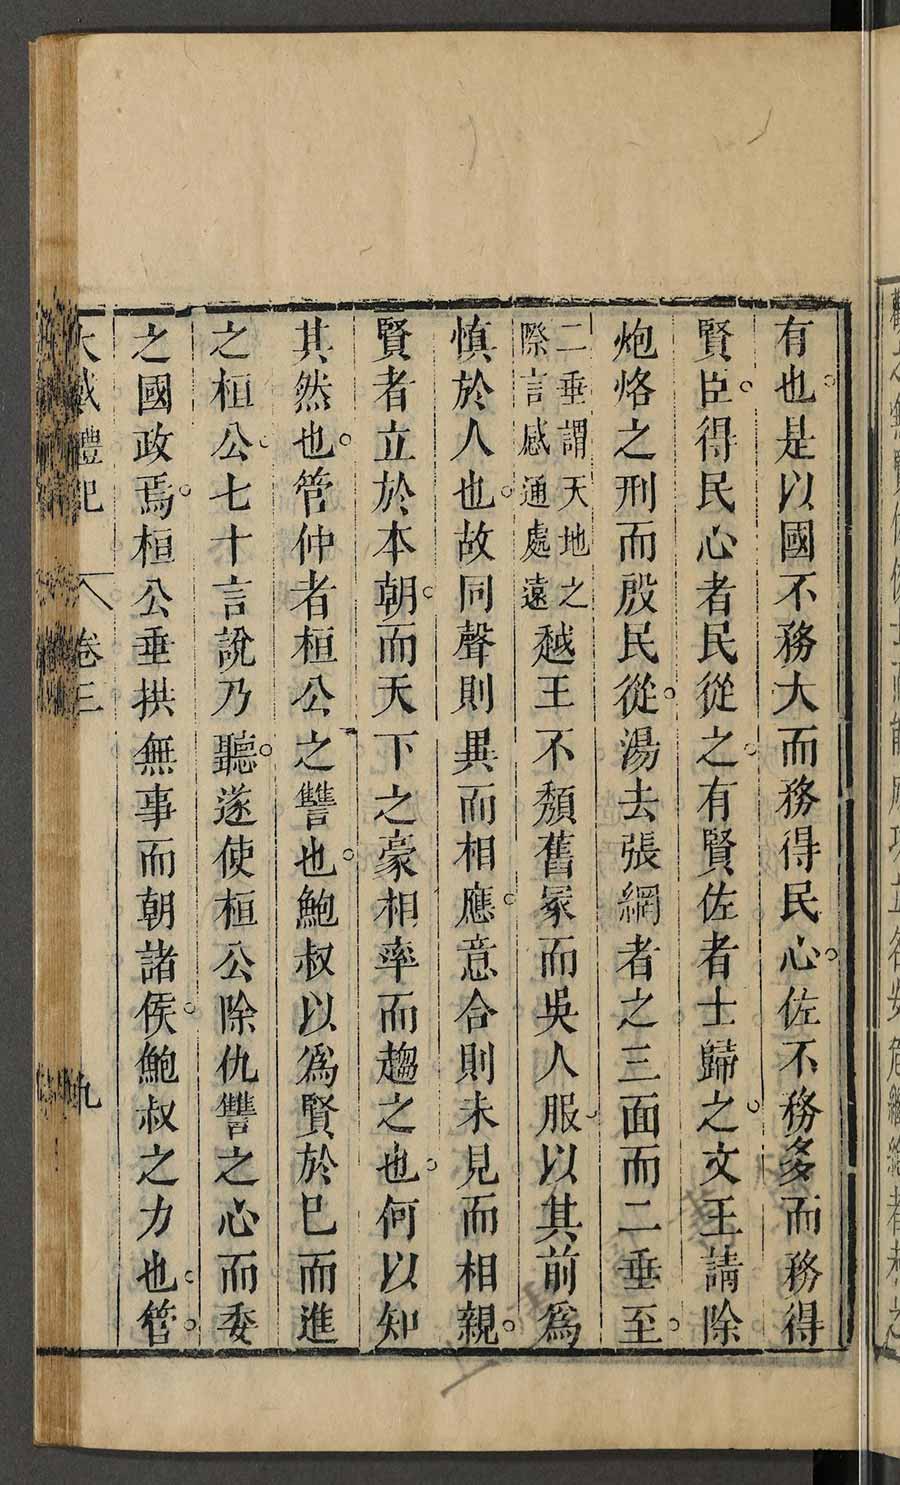 有也是以國不務大而務得民心佐不務多而務得
賢臣得民心者民從之有賢佐者士歸之文王請除
炮烙之刑而殷民從湯去張網者之三面而二垂至
二垂謂天地之
際言感通處遠
越王不頹舊冢而吳人服以其前爲
慎於人也故同聲則異而相應意合則未見而相親
賢者立於本朝而天下之豪相率而趨之也何以知
其然也管仲者桓公之讐也鮑叔以爲賢於已而進
之桓公七十言說乃聽遂使桓公除仇讐之心而委
之國政焉桓公垂拱無事而朝諸侯鮑叔之力也管
大戴禮記 卷三 九